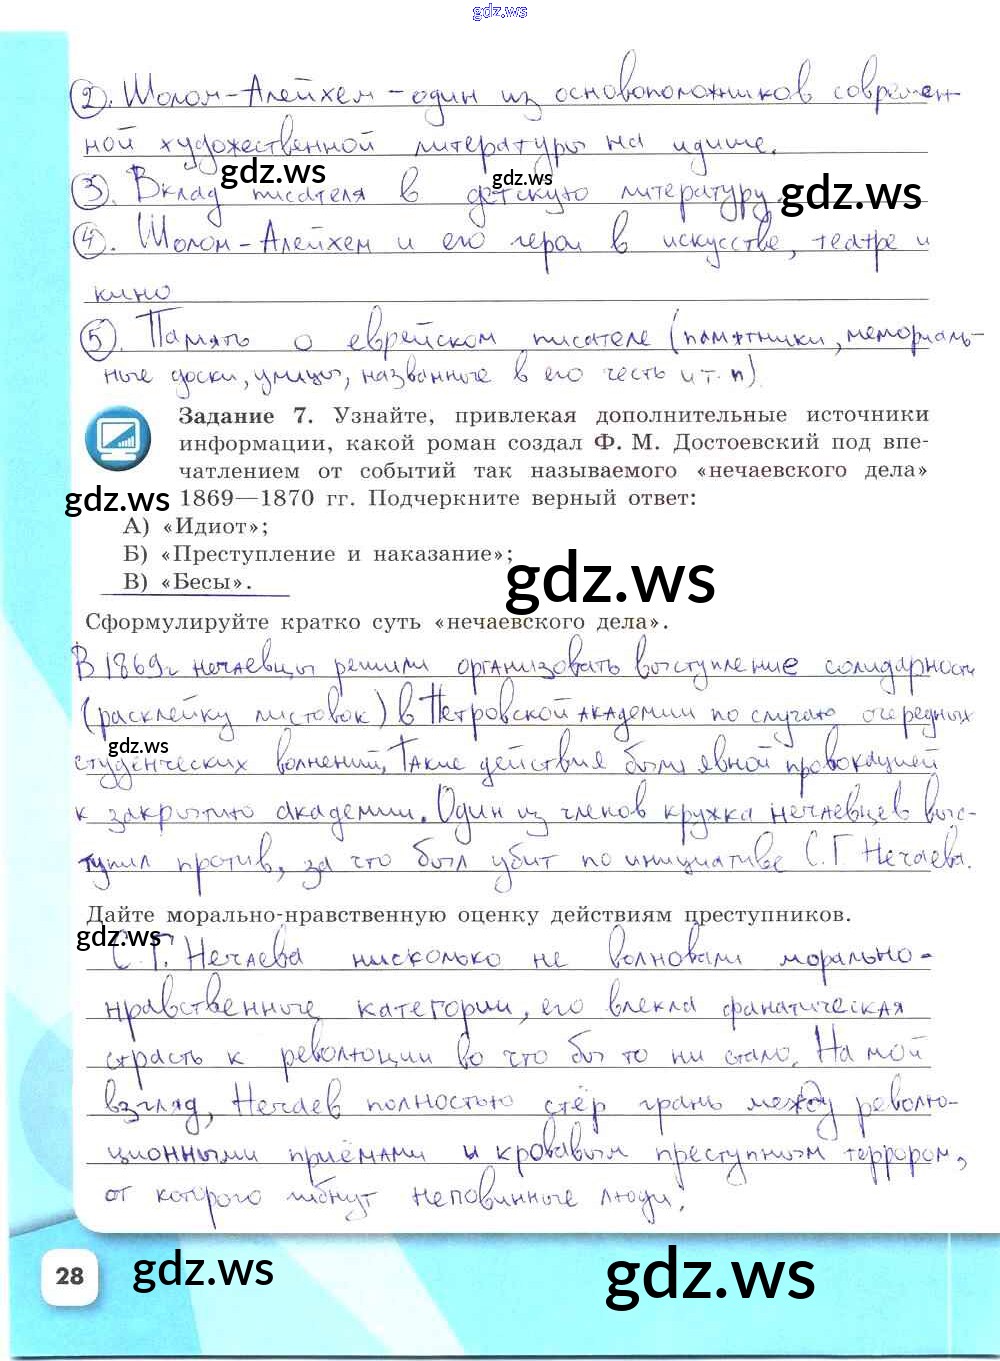 gdz.ws
2). Шолом-Алейхем - один из основоположников современ-
ной художественной литературы на идише.
gdz.ws gdz.ws
3). Вклад писателя в детскую литературу.
gdz.ws
4). Шолом-Алейхем и его герои в искусстве, театре и
кино
5). Память о еврейском писателе (памятники, мемориаль-
ные доски, улицы, названные в его честь и т. п).
Задание 7. Узнайте, привлекая дополнительные источники
информации, какой роман создал Ф. М. Достоевский под впе-
чатлением от событий так называемого «нечаевского дела»
gdz.ws
1869—1870 гг. Подчеркните верный ответ:
А) «Идиот»;
Б) «Преступление и наказание»;
В) «Бесы».
gdz.ws
Сформулируйте кратко суть «нечаевского дела».
В 1869г нечаевцы решили организовать выступление солидарности
(расклейку листовок) в Петровской академии по случаю очередных
gdz.ws
студенческих волнений. Такие действия были явной провокацией
к закрытию академии. Один из членов кружка нечаевцев выс-
тупил против, за что был убит по инициативе С.Г. Нечаева.
Дайте морально-нравственную оценку действиям преступников.
gdz.ws
С. Г. Нечаева нисколько не волновали морально-
нравственные категории, его влекла фанатическая
страсть к революции во что бы то ни стало. На мой
взгляд, Нечаев полностью стёр грань между револю-
ционными приёмами и кровавым преступным террором,
от которого гибнут неповинные люди.
28
gdz.ws gdz.ws